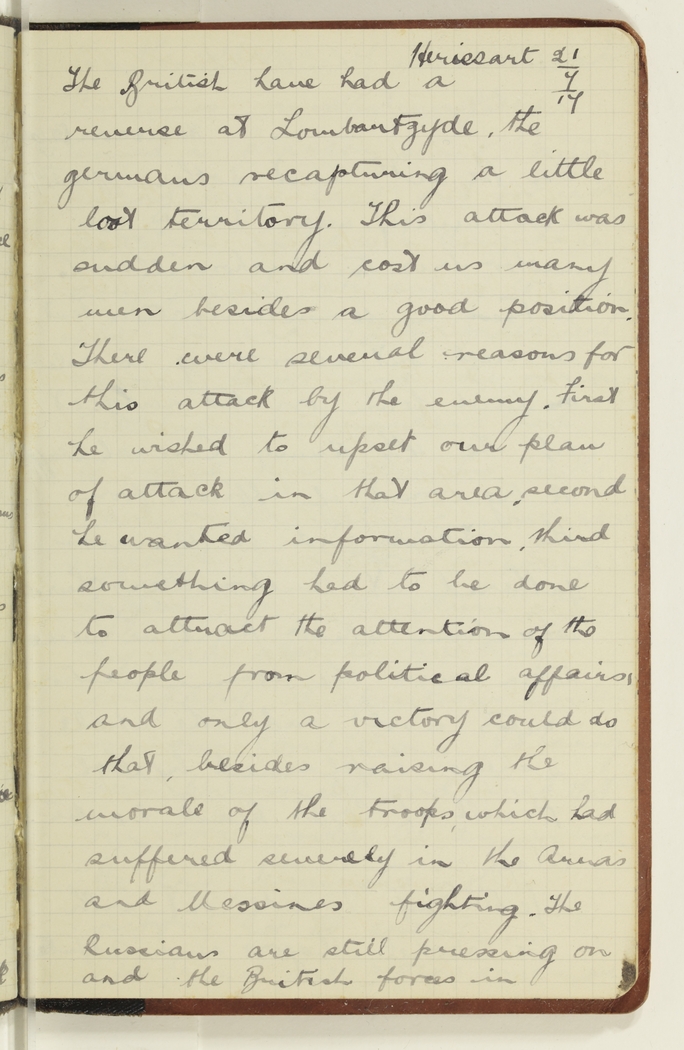 Herissart 21/7/17
The British have had a
reverse at Lombartzyde, the
germans recapturing a little
lost territory. This attack was
sudden and cost us many
men besides a good position.
There were several reasons for
this attack by the enemy. First
he wished to upset our plan
of attack in that area, second
he wanted information, third
something had to be done
to attract the attention of the
people from political affairs,
and only a victory could do
that, besides raising the
morale of the troops, which had
suffered severely in the Arras
and Messines fighting. The
Russians are still pressing on
and the British forces in